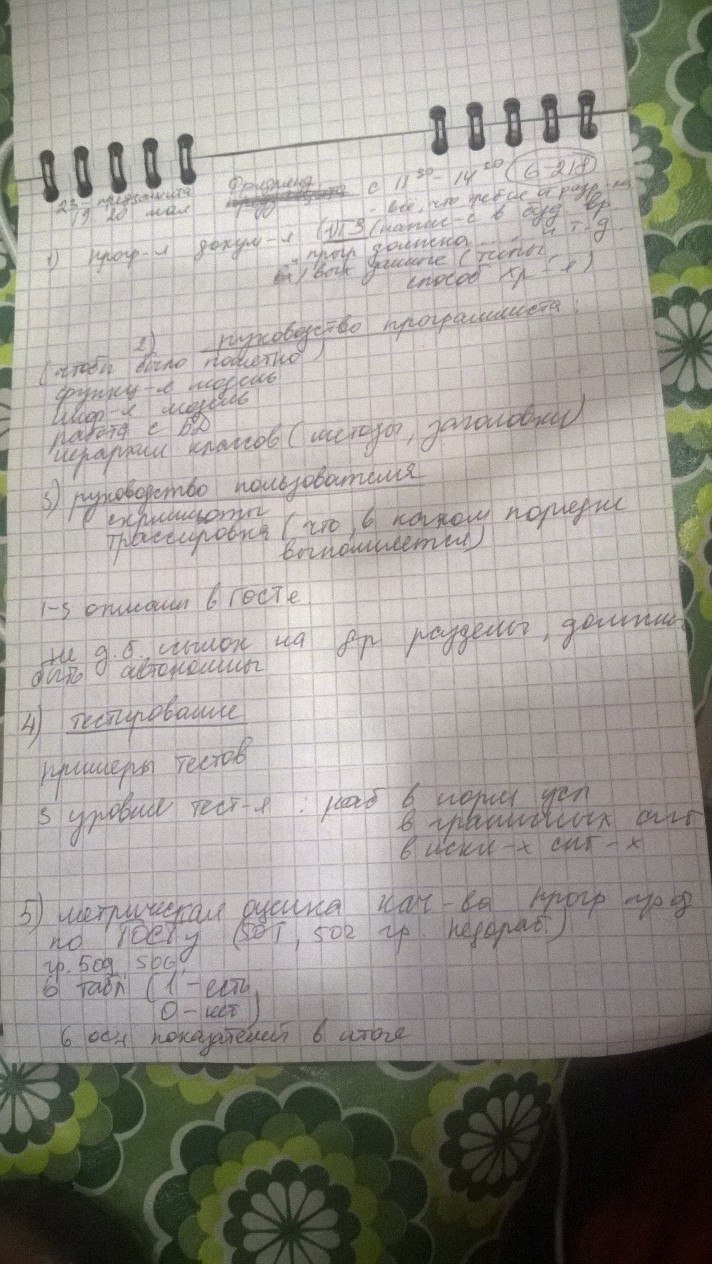 23 - предзащита Фридланд с 11³⁰ - 14²⁰ (6-218)
19 20 мая
1) прогр-я докум-я (ТЗ (напис-е в буд. вр.
прогр должна... и т. д.
вх/вых данные (типы,
способ хр-я)
2) руководство программиста
(чтобы было понятно)
функц-я модель
инф-я модель
работа с БД
иерархия классов (методы, заголовки)
3) руководство пользователя
скриншоты
трассировка (что, в каком порядке
выполняется)
1-3 описаны в ГОСТе
не д. б. ссылок на др разделы, должны
быть автономны
4) тестирование
примеры тестов
3 уровня тест-я: раб в норм усл
в граничных сит
в искл-х сит-х
5) метрическая оценка кач-ва прогр прод
по ГОСТу (501, 502 гр недораб)
гр. 509, 506
6 табл (1 - есть
0 - нет)
6 осн показателей в итоге